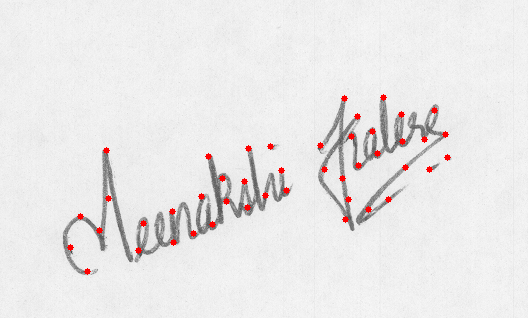 Meenakshi Kalese